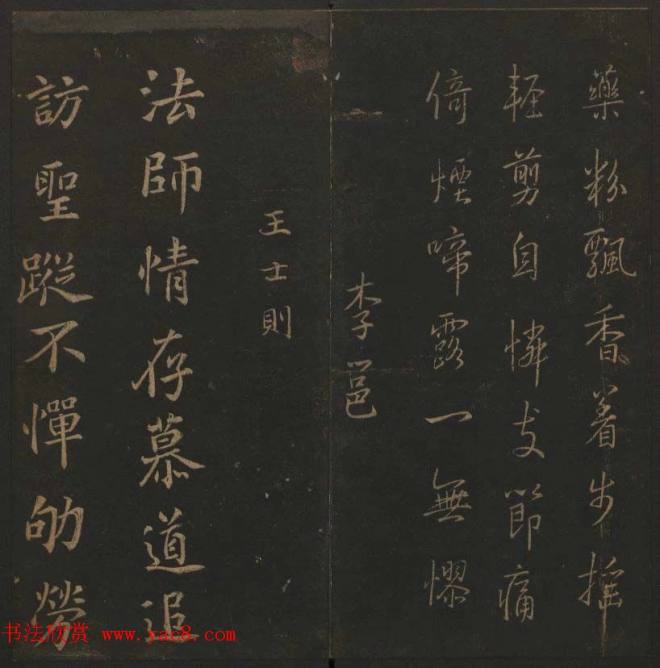 藥粉飄香着步摇
輕剪自憐支節痛
倚煙啼露一無憀
李邕
王士則
法師情存慕道追
訪聖蹤不憚劬勞
书法欣赏 www.xac8.com